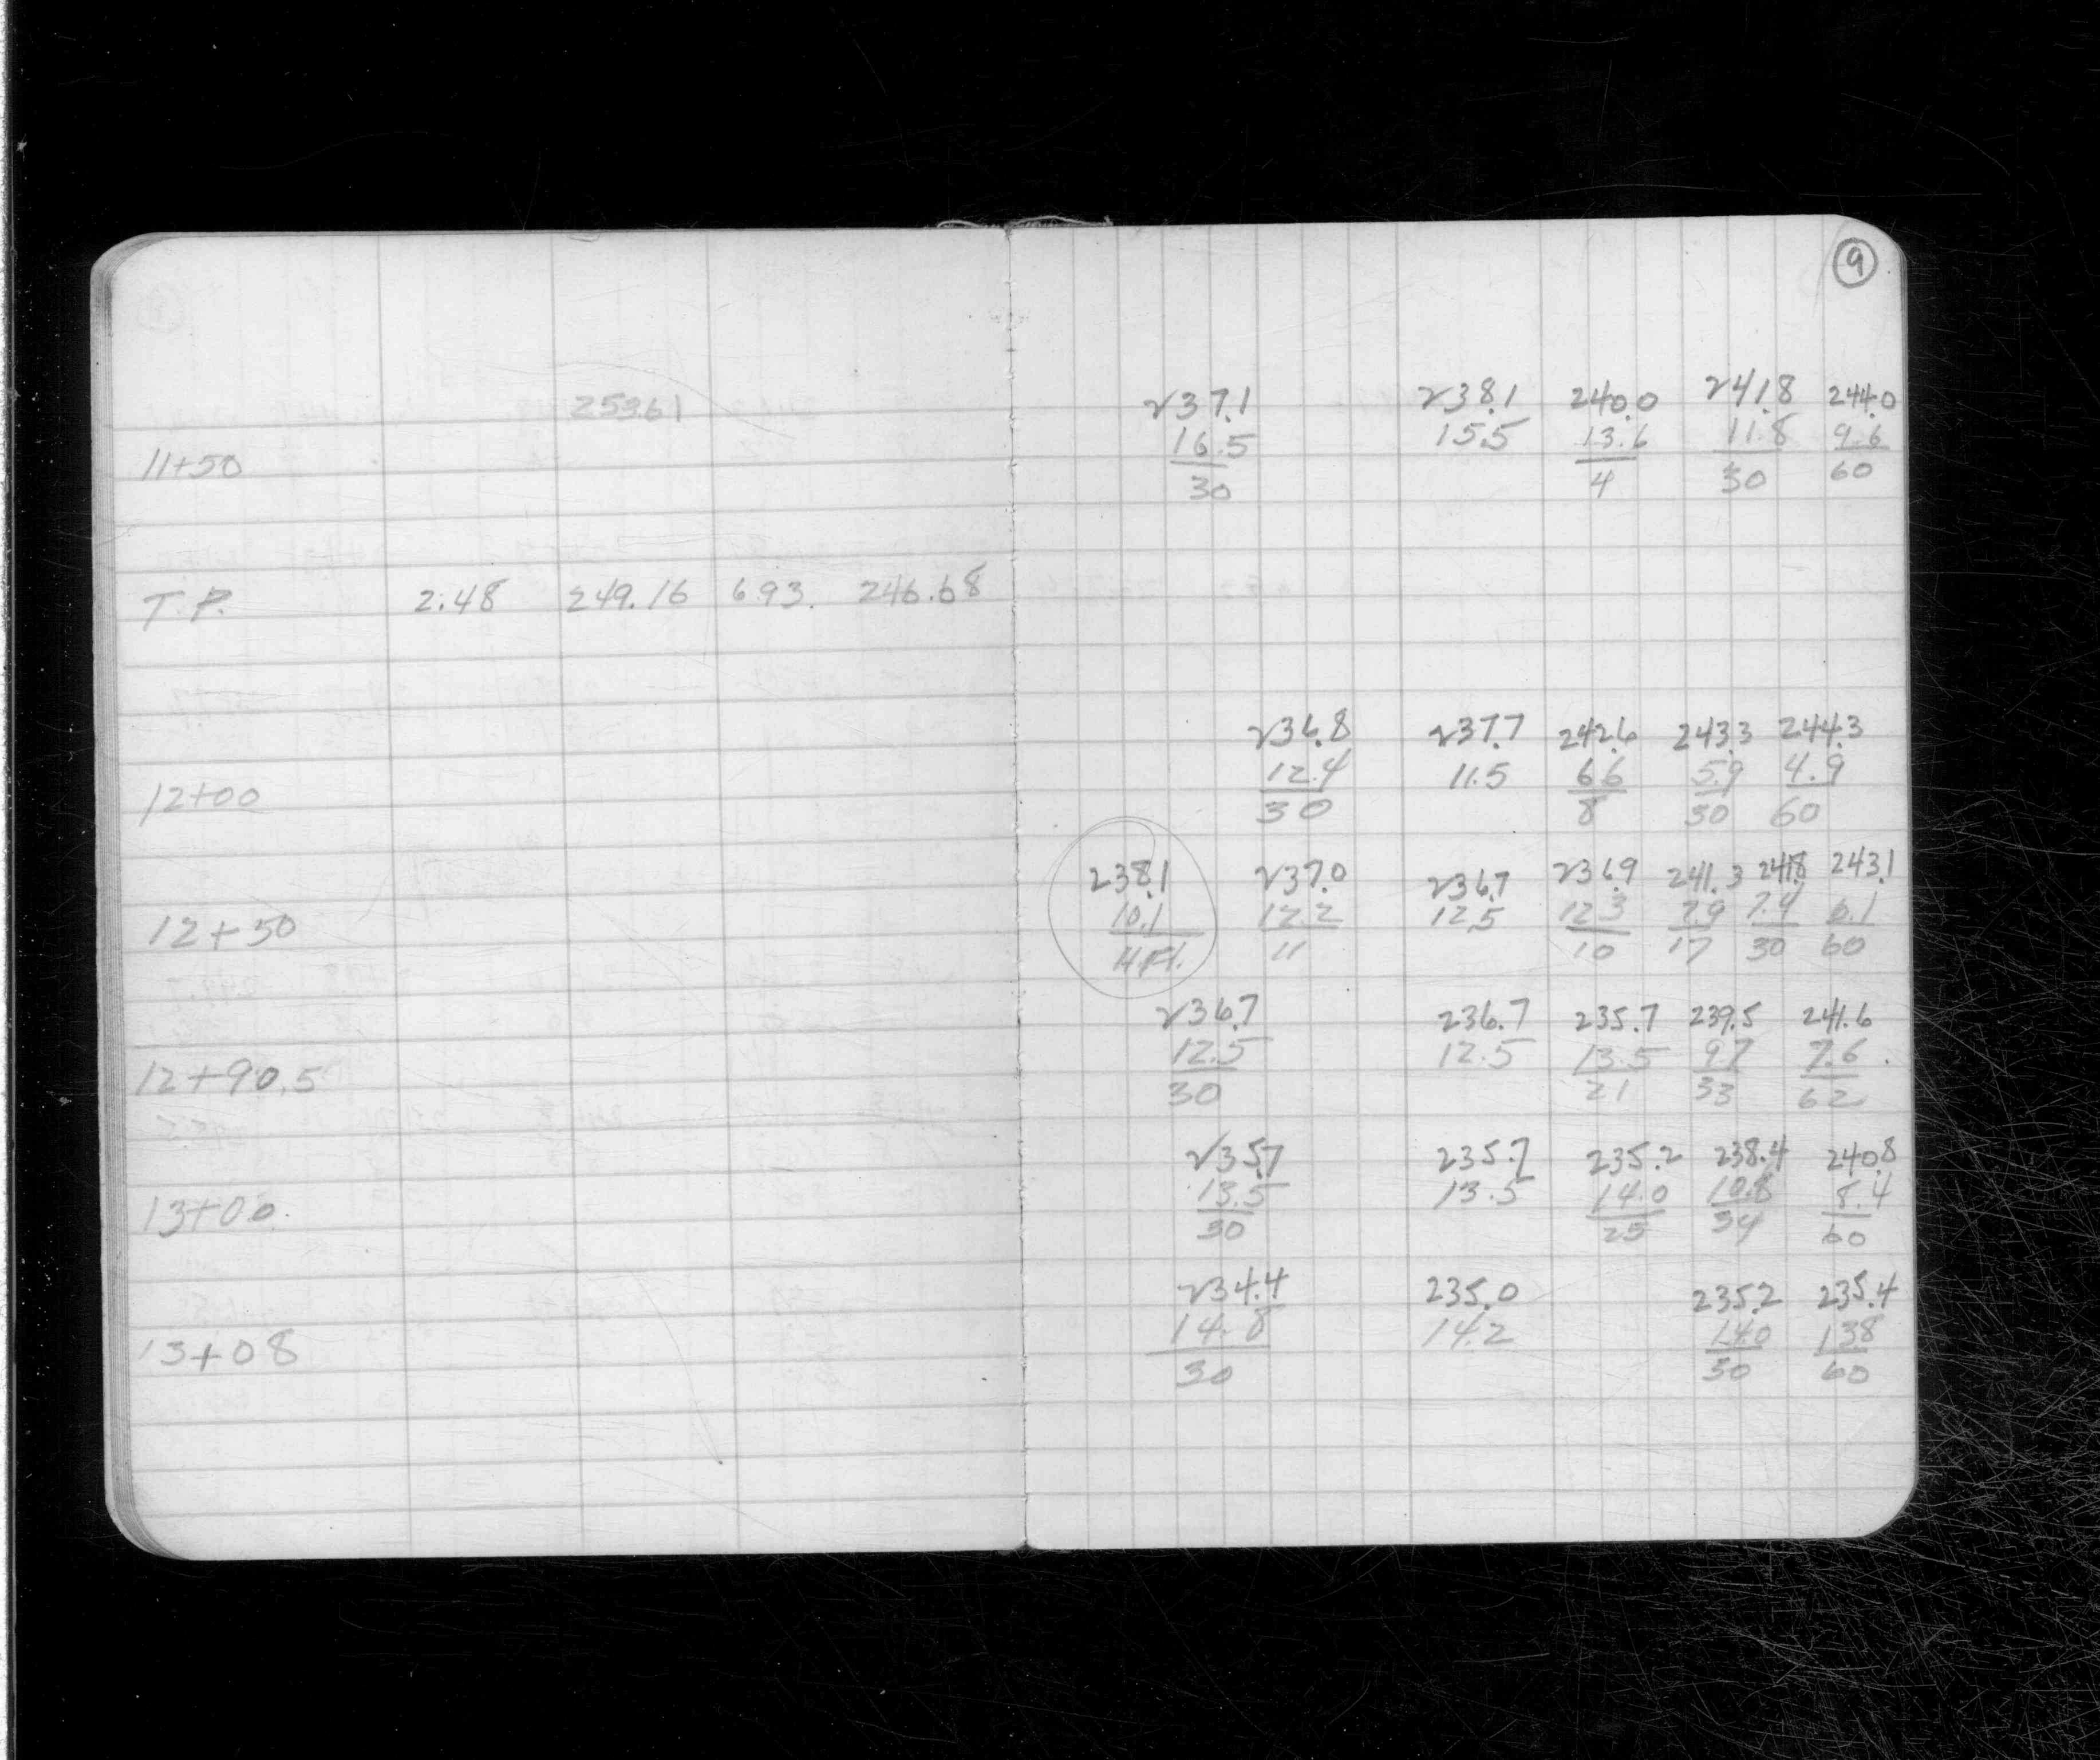 9
253.61 237.1 238.1 240.0 241.8 244.0
16.5 15.5 13.6 11.8 9.6
11+50 30 4 30 60
T.P. 2.48 249.16 6.93 246.68
236.8 237.7 242.6 243.3 244.3
12.4 11.5 6.6 5.9 4.9
12+00 30 8 30 60
238.1 237.0 236.7 236.9 241.3 241.8 243.1
10.1 12.2 12.5 12.3 7.9 7.4 6.1
12+50 11 10 17 30 60
236.7 236.7 235.7 239.5 241.6
12.5 12.5 13.5 9.7 7.6
12+90.5 30 21 33 62
235.7 235.7 235.2 238.4 240.8
13.5 13.5 14.0 10.8 8.4
13+00. 30 25 34 60
234.4 235.0 235.2 235.4
14.8 14.2 14.0 13.8
13+08 30 30 60